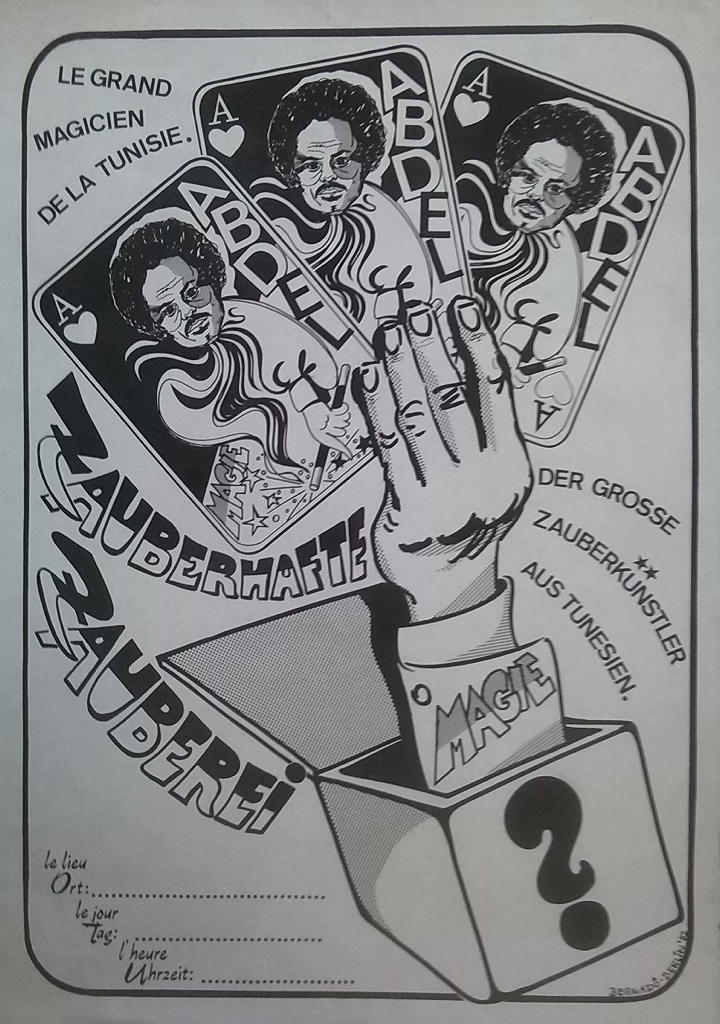 LE GRAND
MAGICIEN
DE LA TUNISIE.
A
ABDEL
A
ABDEL
A
ABDEL
A
MAGIE
ZAUBERHAFTE
ZAUBEREI
DER GROSSE
ZAUBERKÜNSTLER
AUS TUNESIEN.
MAGIE
?
le lieu
Ort:
le jour
Tag:
l'heure
Uhrzeit:
BERNADÓ-BERLIN '82